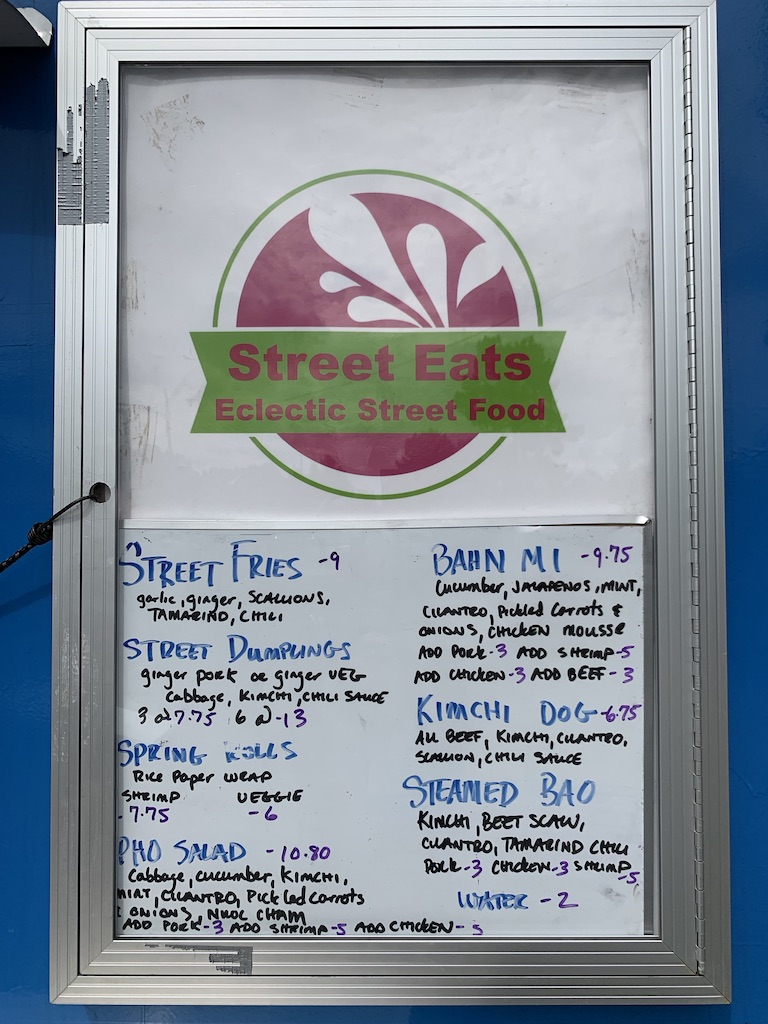 Street Eats
Eclectic Street Food
STREET FRIES -9
garlic, ginger, SCALLIONS,
TAMARIND, CHILI
STREET DUMPLINGS
ginger pork or ginger VEG
Cabbage, KIMCHI, CHILI SAUCE
3 @ 7.75 6 @ -13
SPRING ROLLS
Rice Paper WRAP
SHRIMP VEGGIE
-7.75 -6
PHO SALAD -10.80
Cabbage, cucumber, KIMCHI,
MINT, CILANTRO, Pickled carrots
& ONIONS, NUOC CHAM
ADD PORK-3 ADD SHRIMP-5 ADD CHICKEN-3
BAHN MI -9.75
Cucumber, JALAPENOS, MINT,
CILANTRO, Pickled Carrots &
ONIONS, CHICKEN MOUSSE
ADD PORK-3 ADD SHRIMP-5
ADD CHICKEN-3 ADD BEEF-3
KIMCHI DOG-6.75
ALL BEEF, KIMCHI, CILANTRO,
SCALLION, CHILI SAUCE
STEAMED BAO
KIMCHI, BEET SLAW,
CILANTRO, TAMARIND CHILI
PORK-3 CHICKEN-3 SHRIMP
-5
WATER -2